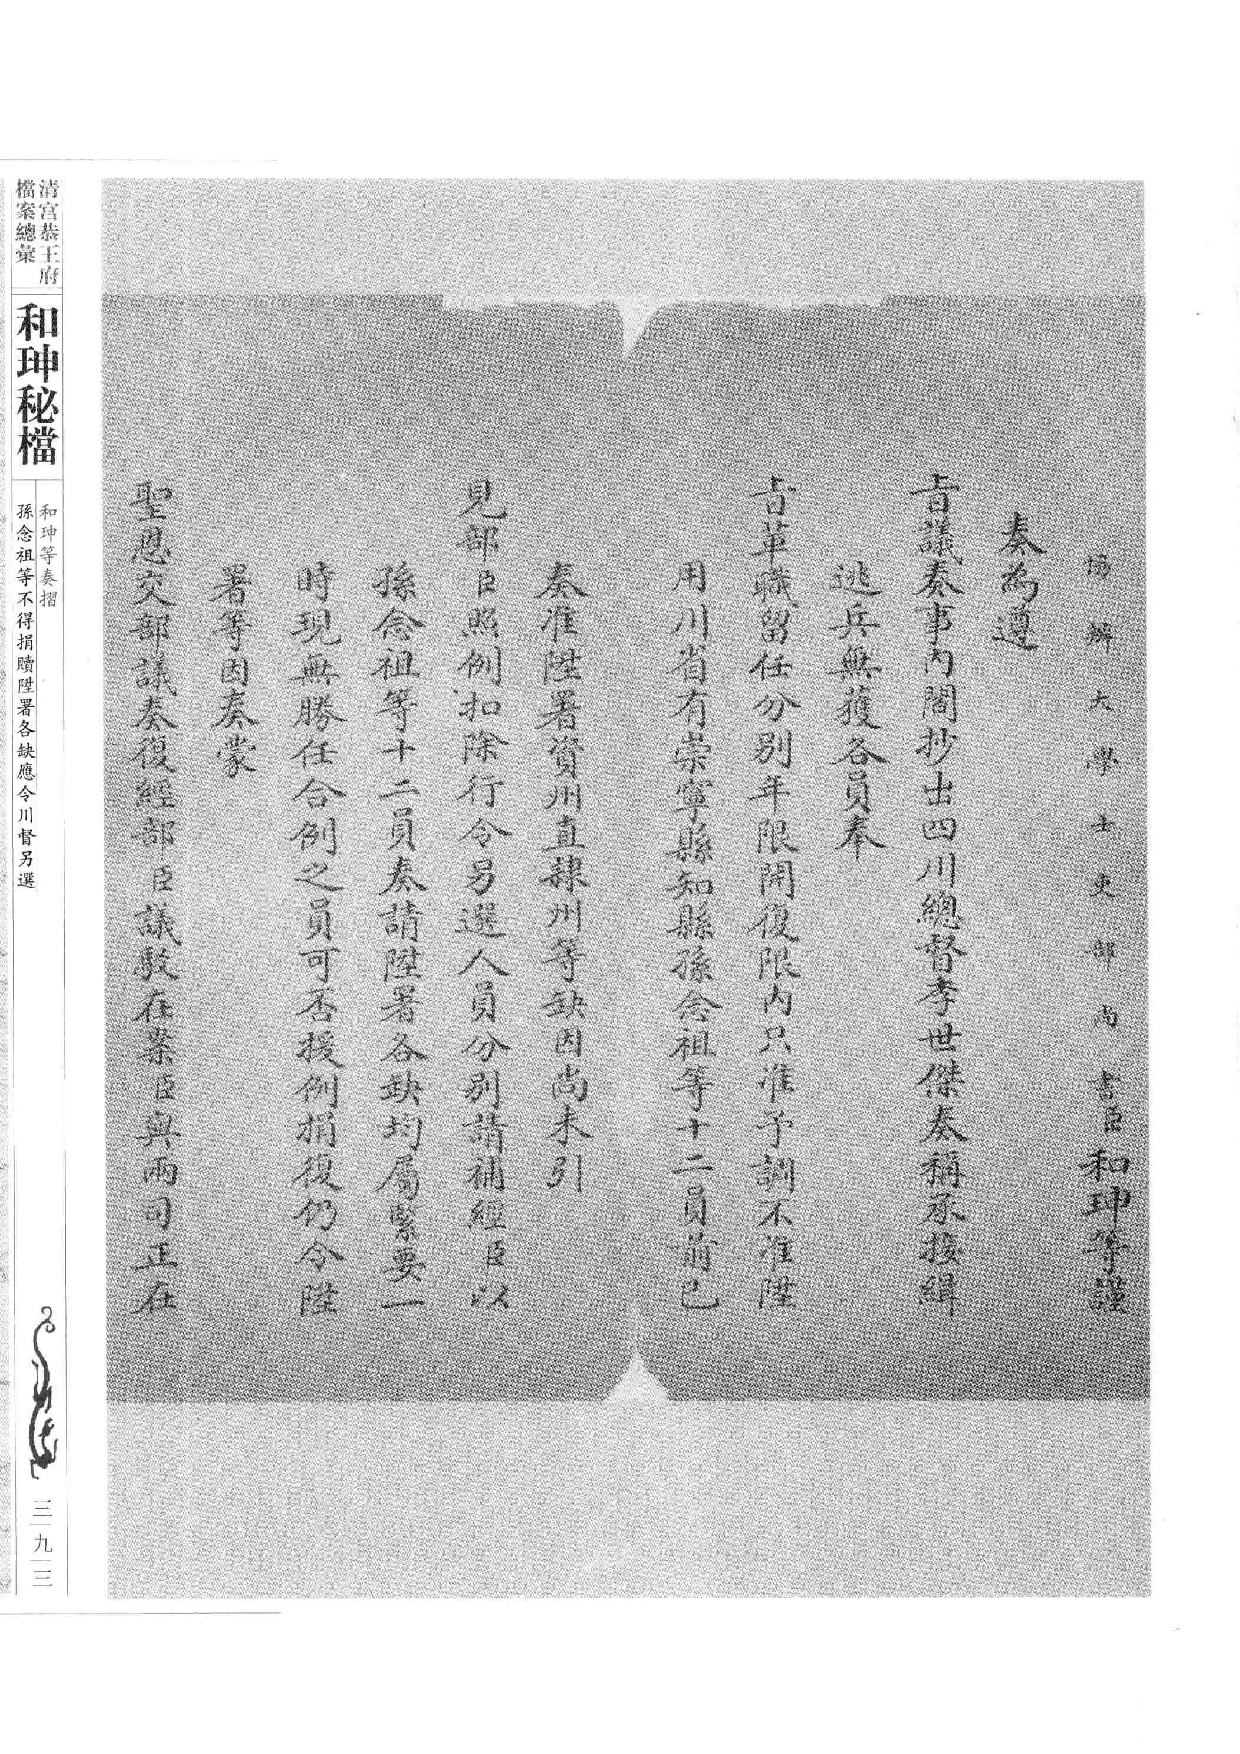 協辦大學士吏部尚書臣和珅等謹
奏為遵
旨議奏事內閣抄出四川總督李世傑奏稱承接緝
逃兵無獲各員奉
旨革職留任分別年限開復限內只准予調不准陞
用川省有崇寧縣知縣孫念祖等十二員前已
奏准陞署資州直隸州等缺因尚未引
見部臣照例扣除行令另選人員分別請補經臣以
孫念祖等十二員奏請陞署各缺均屬緊要一
時現無勝任合例之員可否援例捐復仍令陞
署等因奏蒙
聖恩交部議奏復經部臣議駁在案臣與兩司正在
清宮恭王府
檔案總彙
和珅秘檔
和珅等奏摺
孫念祖等不得捐贖陞署各缺應令川督另選
三九三